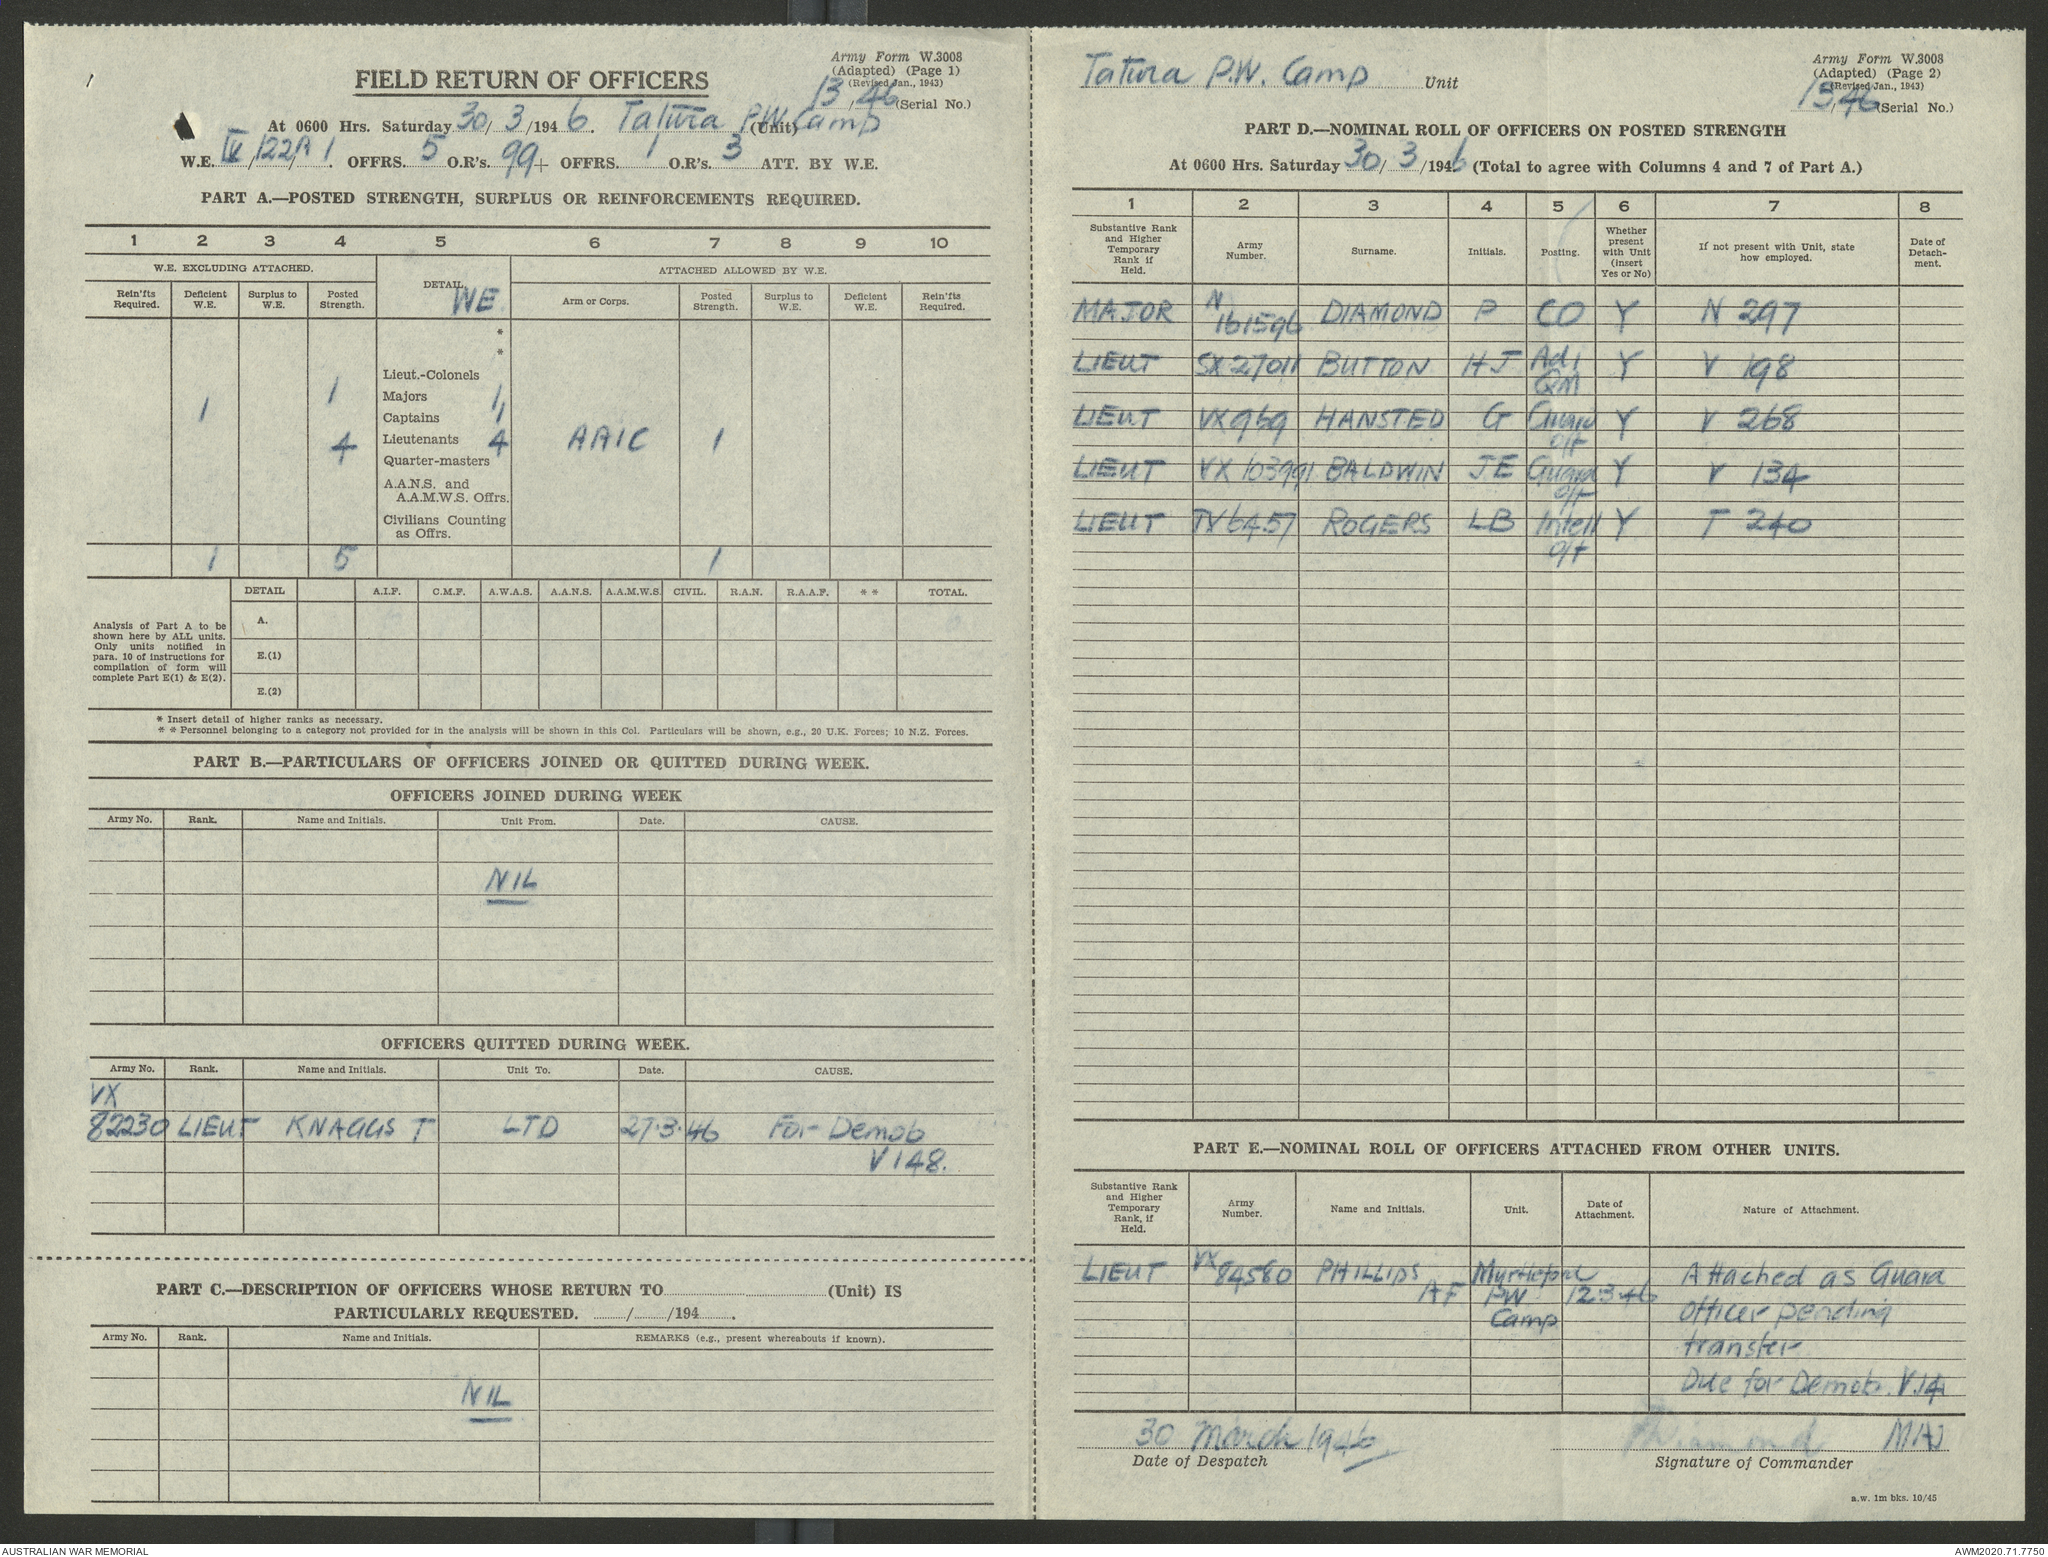 Army Form W.3008
(Adapted) (Page 1)
(Revised Jan., 1943)
13/46 (Serial No.)
FIELD RETURN OF OFFICERS
At 0600 Hrs. Saturday 30/3/1946. Tatura P.W. Camp (Unit)
W.E. IV/122A/1 OFFRS. 5 O.R's. 99 + OFFRS. 1 O.R's. 3 ATT. BY W.E.
PART A.—POSTED STRENGTH, SURPLUS OR REINFORCEMENTS REQUIRED.
1 2 3 4 5 6 7 8 9 10
W.E. EXCLUDING ATTACHED. DETAIL WE ATTACHED ALLOWED BY W.E.
Rein'fts Required. Deficient W.E. Surplus to W.E. Posted Strength. Arm or Corps. Posted Strength. Surplus to W.E. Deficient W.E. Rein'fts Required.
*
*
Lieut.-Colonels
1 Majors 1
1 Captains 1
4 Lieutenants 4 AAIC 1
Quarter-masters
A.A.N.S. and
A.A.M.W.S. Offrs.
Civilians Counting
as Offrs.
1 5 1
DETAIL A.I.F. C.M.F. A.W.A.S. A.A.N.S. A.A.M.W.S. CIVIL. R.A.N. R.A.A.F. * * TOTAL.
Analysis of Part A to be
shown here by ALL units.
Only units notified in
para. 10 of instructions for
compilation of form will
complete Part E(1) & E(2).
A.
E.(1)
E.(2)
* Insert detail of higher ranks as necessary.
* * Personnel belonging to a category not provided for in the analysis will be shown in this Col. Particulars will be shown, e.g., 20 U.K. Forces; 10 N.Z. Forces.
PART B.—PARTICULARS OF OFFICERS JOINED OR QUITTED DURING WEEK.
OFFICERS JOINED DURING WEEK
Army No. Rank. Name and Initials. Unit From. Date. CAUSE.
NIL
OFFICERS QUITTED DURING WEEK.
Army No. Rank. Name and Initials. Unit To. Date. CAUSE.
VX
82230 LIEUT KNAGGS T LTD 27.3.46 For Demob
V148.
PART C.—DESCRIPTION OF OFFICERS WHOSE RETURN TO (Unit) IS
PARTICULARLY REQUESTED. / /194 .
Army No. Rank. Name and Initials. REMARKS (e.g., present whereabouts if known).
NIL
Tatura P.W. Camp Unit
Army Form W.3008
(Adapted) (Page 2)
(Revised Jan., 1943)
13/46 (Serial No.)
PART D.—NOMINAL ROLL OF OFFICERS ON POSTED STRENGTH
At 0600 Hrs. Saturday 30/3/1946 (Total to agree with Columns 4 and 7 of Part A.)
1 2 3 4 5 6 7 8
Substantive Rank and Higher Temporary Rank if Held. Army Number. Surname. Initials. Posting. Whether present with Unit (insert Yes or No) If not present with Unit, state how employed. Date of Detachment.
MAJOR N 161596 DIAMOND P CO Y N 297
LIEUT SX27011 BUTTON HJ Adj QM Y V 198
LIEUT VX969 HANSTED G Guard off Y V 268
LIEUT VX103991 BALDWIN JE Guard off Y V 134
LIEUT TX6457 ROGERS LB Intell off Y T 240
PART E.—NOMINAL ROLL OF OFFICERS ATTACHED FROM OTHER UNITS.
Substantive Rank and Higher Temporary Rank, if Held. Army Number. Name and Initials. Unit. Date of Attachment. Nature of Attachment.
LIEUT VX 84580 PHILLIPS AF Myrtleford PW Camp 12.3.46 Attached as Guard
officer pending
transfer
Due for Demob. V14
30 March 1946 PDiamond MAJ
Date of Despatch Signature of Commander
a.w. 1m bks. 10/45
AUSTRALIAN WAR MEMORIAL AWM2020.71.7750